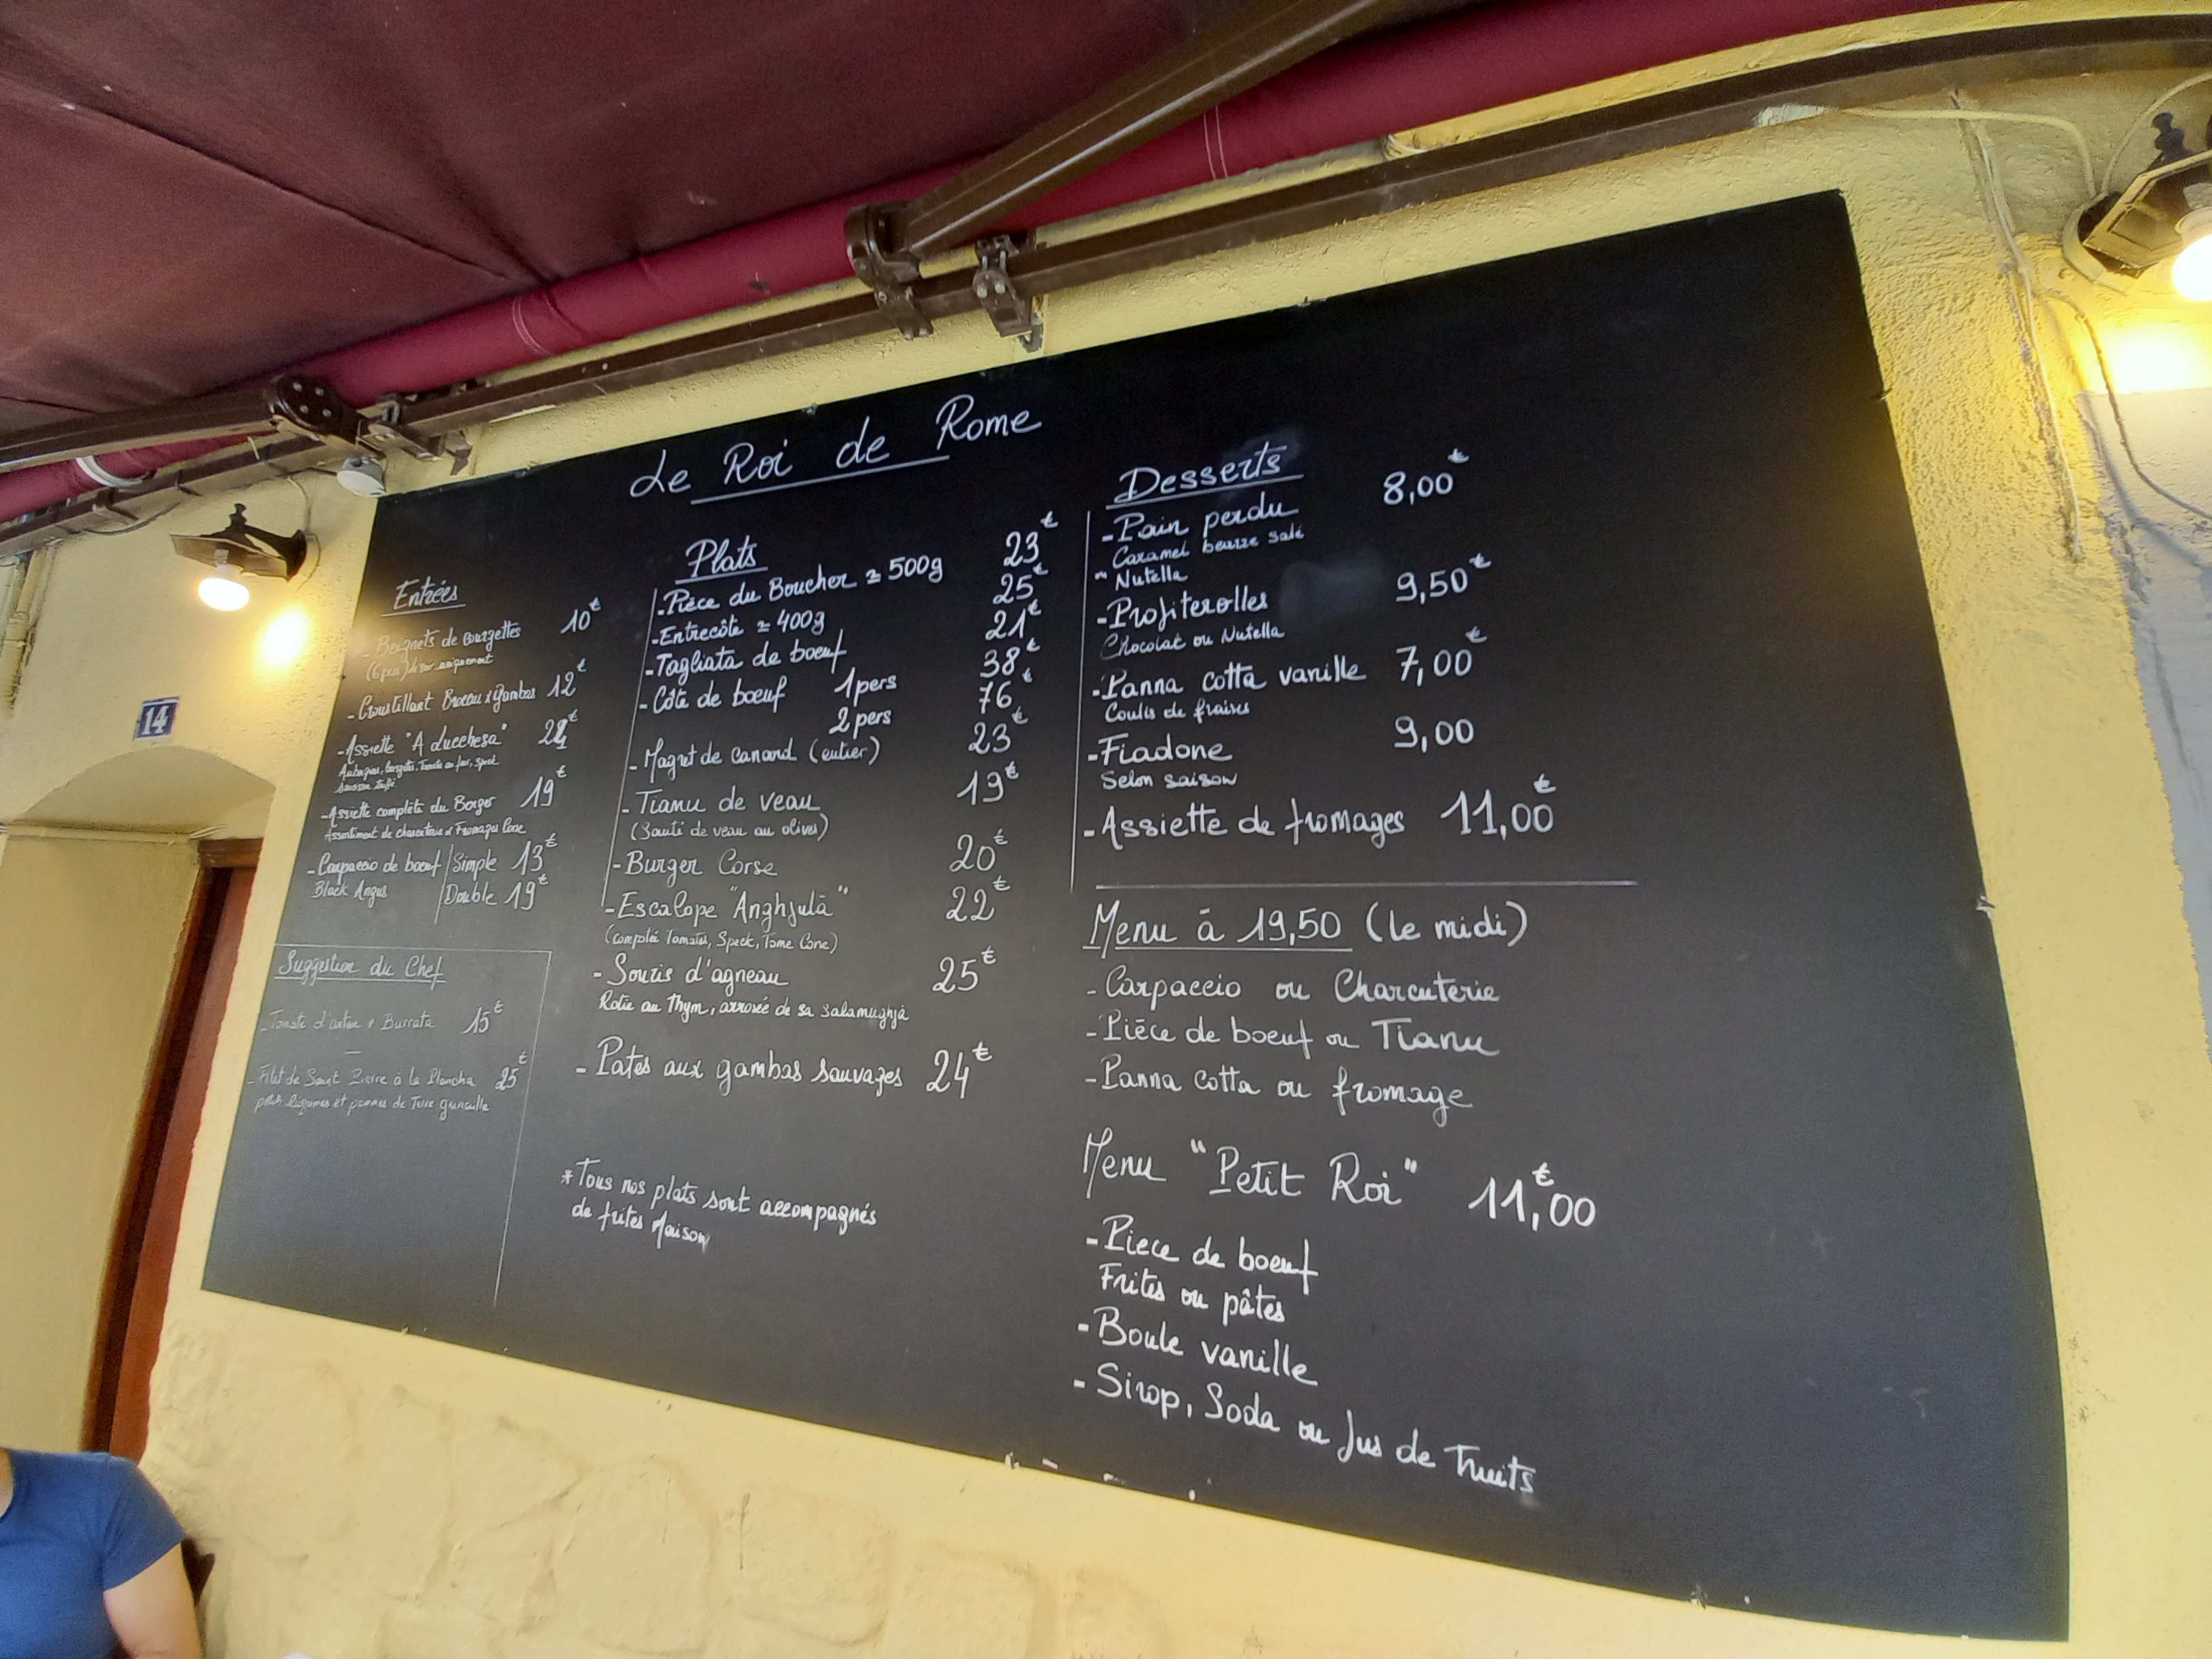 Le Roi de Rome
Entrées
- Beignets de courgettes 10€
(6 pces) le soir uniquement
- Croustillant Brocciu & gambas 12€
- Assiette "A Lucchesa"
Aubergines, Courgette, Tomate au four, Speck
- Assiette complète du Berger 19€
Assortiment de charcuterie & Fromages Corse
- Carpaccio de boeuf | Simple 13€
Black Angus | Double 19€
Suggestion du Chef
- Tomate d'antan & Burrata 15€
- Filet de Saint Pierre à la Plancha 25€
petits légumes et pommes de Terre grenaille
Plats
- Pièce du Boucher ≃ 500g 23€
- Entrecôte ≃ 400g 25€
- Tagliata de boeuf 21€
- Côte de boeuf 1 pers 38€
2 pers 76€
- Magret de canard (entier) 23€
- Tianu de veau 19€
(Sauté de veau au olives)
- Burger Corse 20€
- Escalope "Anghjulà" 22€
(compotée Tomates, Speck, Tome Corse)
- Souris d'agneau 25€
Rotie au Thym, arrosée de sa salamughjà
- Pates aux gambas sauvages 24€
*Tous nos plats sont accompagnés
de frites Maison
Desserts
- Pain perdu 8,00€
Caramel beurre salé
" Nutella
- Profiterolles 9,50€
Chocolat ou Nutella
- Panna cotta vanille 7,00€
Coulis de fraises
- Fiadone 9,00
Selon saison
- Assiette de fromages 11,00€
Menu à 19,50 (le midi)
- Carpaccio ou Charcuterie
- Pièce de boeuf ou Tianu
- Panna cotta ou fromage
Menu "Petit Roi" 11,00€
- Piece de boeuf
Frites ou pâtes
- Boule vanille
- Sirop, Soda ou Jus de Fruits
14